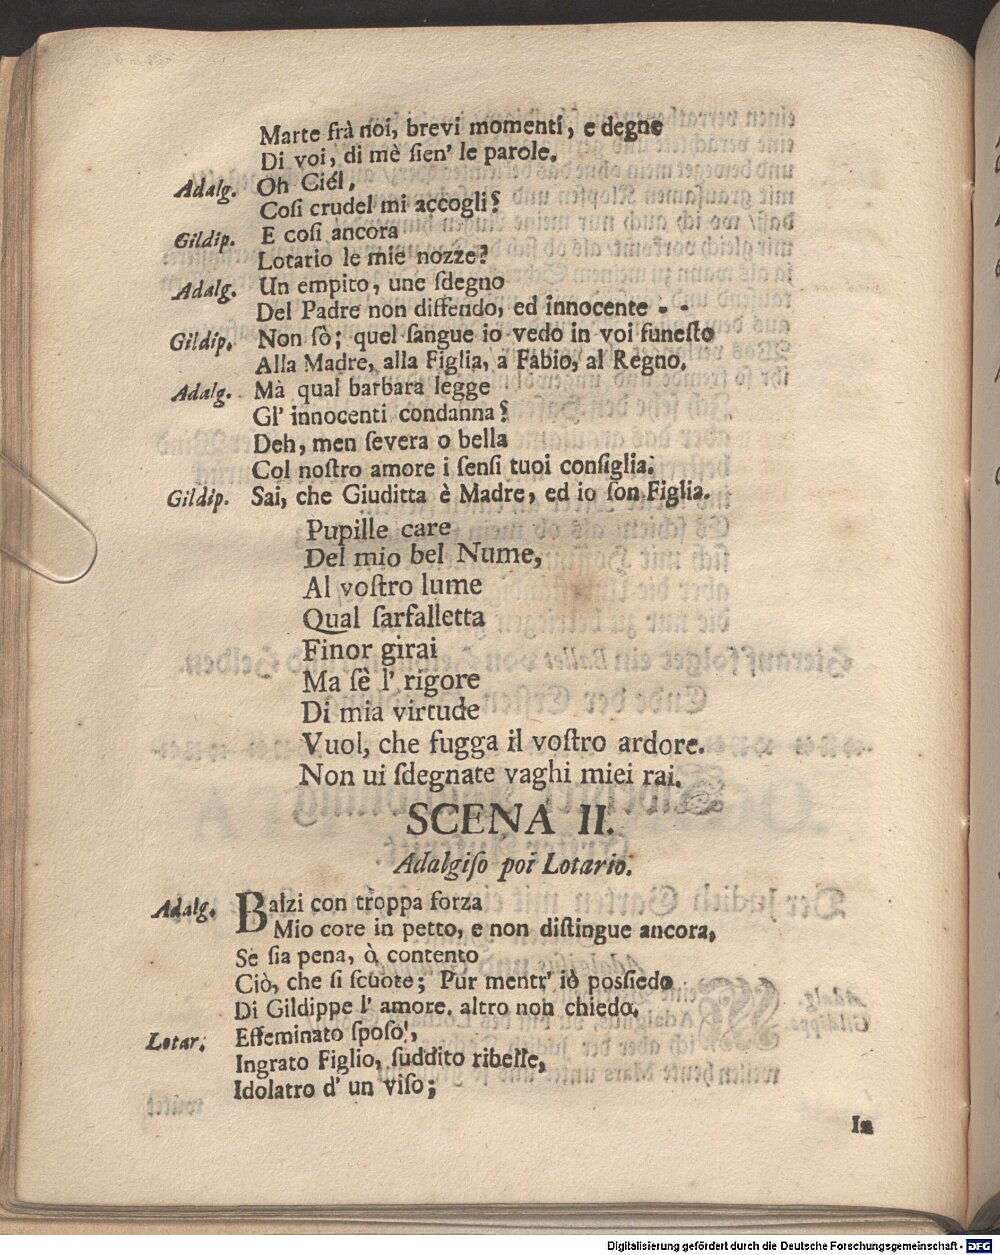 Marte frà noi, brevi momenti, e degne
Di voi, di mè ſien' le parole.
Adalg. Oh Ciél,
Coſi crudel mi accogli?
Gildip. E coſi ancora
Lotario le mie nozze?
Adalg. Un empito, une ſdegno
Del Padre non diffendo, ed innocente - -
Gildip. Non sò; quel ſangue io vedo in voi funeſto
Alla Madre, alla Figlia, a Fabio, al Regno.
Adalg. Mà qual barbara legge
Gl' innocenti condanna?
Deh, men ſevera o bella
Col noſtro amore i ſenſi tuoi conſiglia.
Gildip. Sai, che Giuditta è Madre, ed io ſon Figlia.
Pupille care
Del mio bel Nume,
Al voſtro lume
Qual farfalletta
Finor girai
Ma ſè l' rigore
Di mia virtude
Vuol, che fugga il voſtro ardore.
Non ui ſdegnate vaghi miei rai.
SCENA II.
Adalgiſo poi Lotario.
Adalg. Balzi con tròppa forza
Mio core in petto, e non diſtingue ancora,
Se ſia pena, ò contento
Ciò, che ſi ſcuote; Pur mentr' iò poſſiedo
Di Gildippe l' amore. altro non chiedo.
Lotar. Effeminato ſposo!,
Ingrato Figlio, ſuddito ribelle,
Idolatro d' un viſo;
In
Digitalisierung gefördert durch die Deutsche Forschungsgemeinschaft - DFG